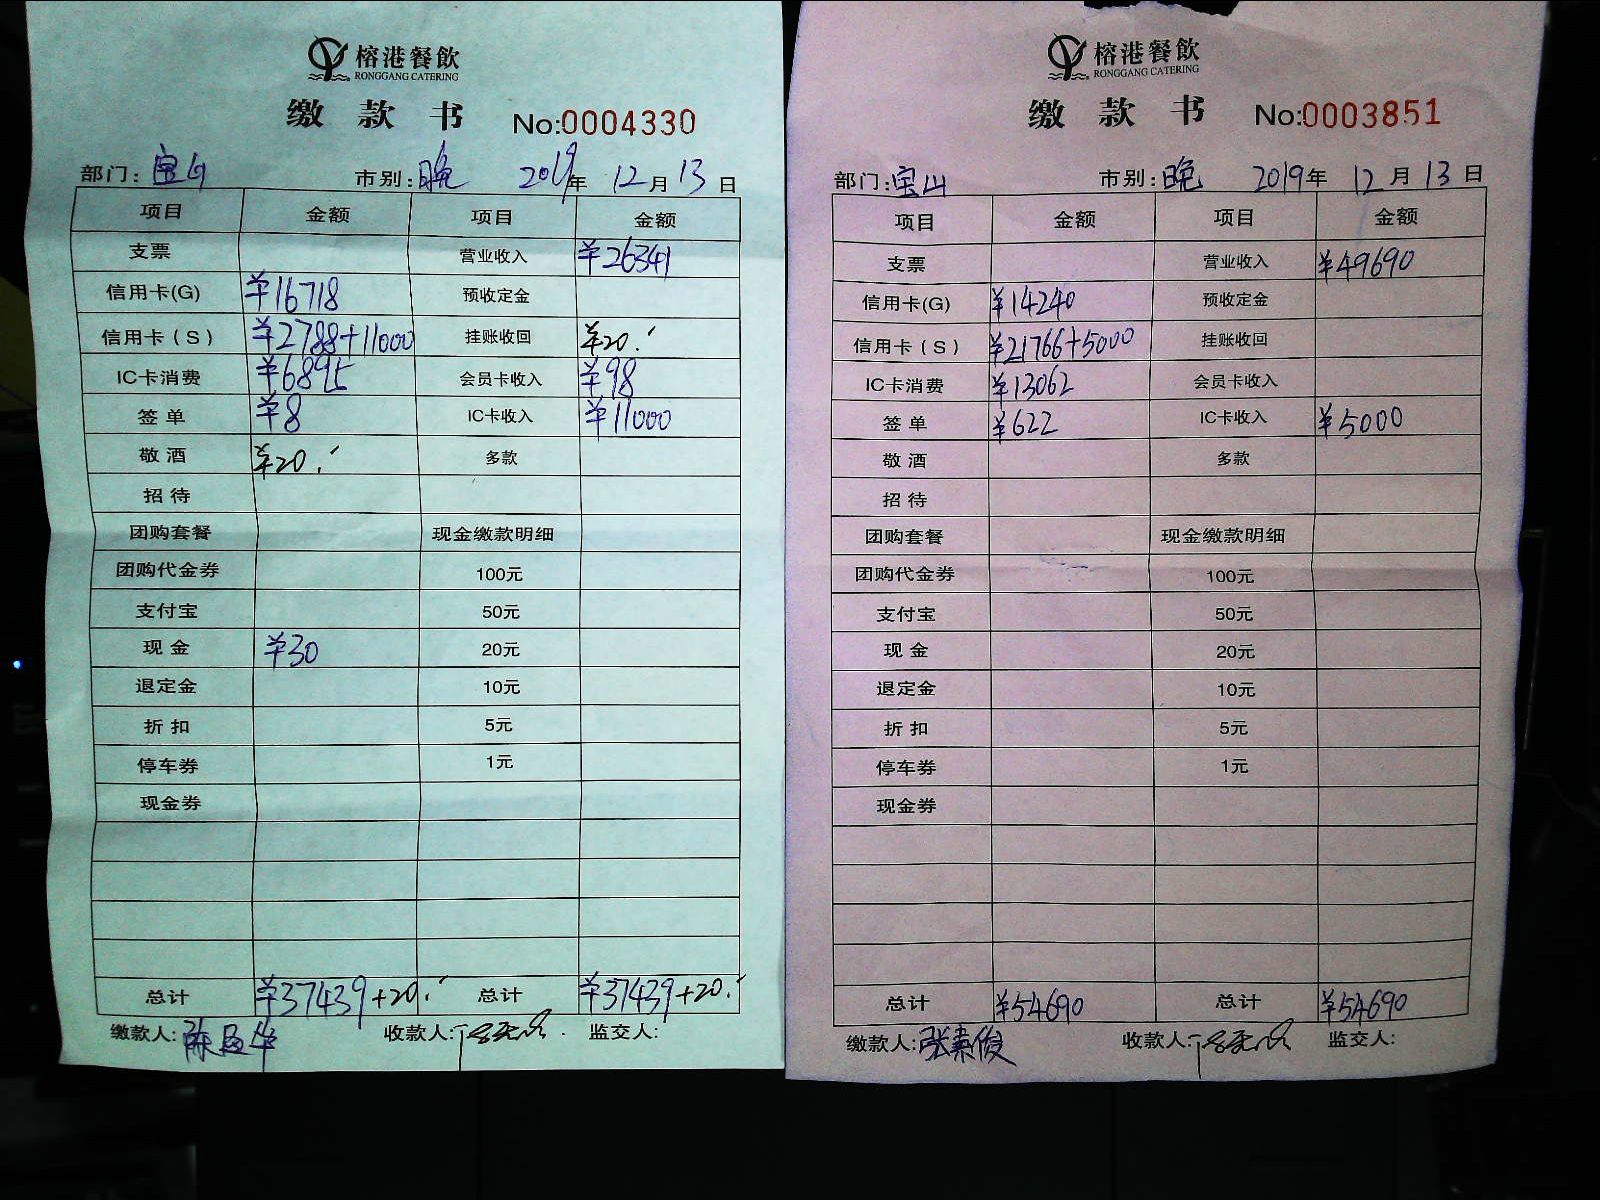 榕港餐飲
RONGGANG CATERING
缴款书 No:0004330
部门: 宝山 市别: 晚 2019年 12月 13日
项目 金额 项目 金额
支票 营业收入 ¥26341
信用卡(G) ¥16718 预收定金
信用卡(S) ¥2788+11000 挂账收回 ¥20.
IC卡消费 ¥6895 会员卡收入 ¥98
签单 ¥8 IC卡收入 ¥11000
敬酒 ¥20. 多款
招待
团购套餐 现金缴款明细
团购代金券 100元
支付宝 50元
现金 ¥30 20元
退定金 10元
折扣 5元
停车券 1元
现金券
总计 ¥37439+20. 总计 ¥37439+20.
缴款人: 收款人: 监交人:
榕港餐飲
RONGGANG CATERING
缴款书 No:0003851
部门: 宝山 市别: 晚 2019年 12月 13日
项目 金额 项目 金额
支票 营业收入 ¥49690
信用卡(G) ¥14240 预收定金
信用卡(S) ¥21766+5000 挂账收回
IC卡消费 ¥13062 会员卡收入
签单 ¥622 IC卡收入 ¥5000
敬酒 多款
招待
团购套餐 现金缴款明细
团购代金券 100元
支付宝 50元
现金 20元
退定金 10元
折扣 5元
停车券 1元
现金券
总计 ¥54690 总计 ¥54690
缴款人: 张素俊 收款人: 监交人: